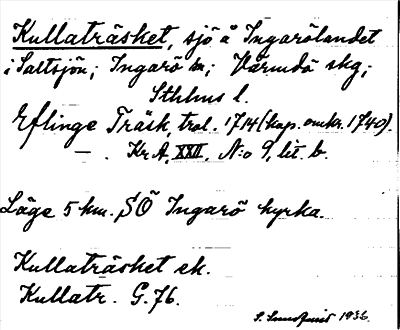 Kullaträsket, sjö å Ingarölandet
i Saltsjön; Ingarö sn; Värmdö skg;
Sthlms l.
Eflinge Träsk, trol. 1714 (kop. omkr. 1740).
— . Kr.A, XXII, N:o 9, lit. b.
Läge 5 km. SÖ Ingarö kyrka.
Kullaträsket ek.
Kullatr. G. 76.
S. Sundquist 1936.